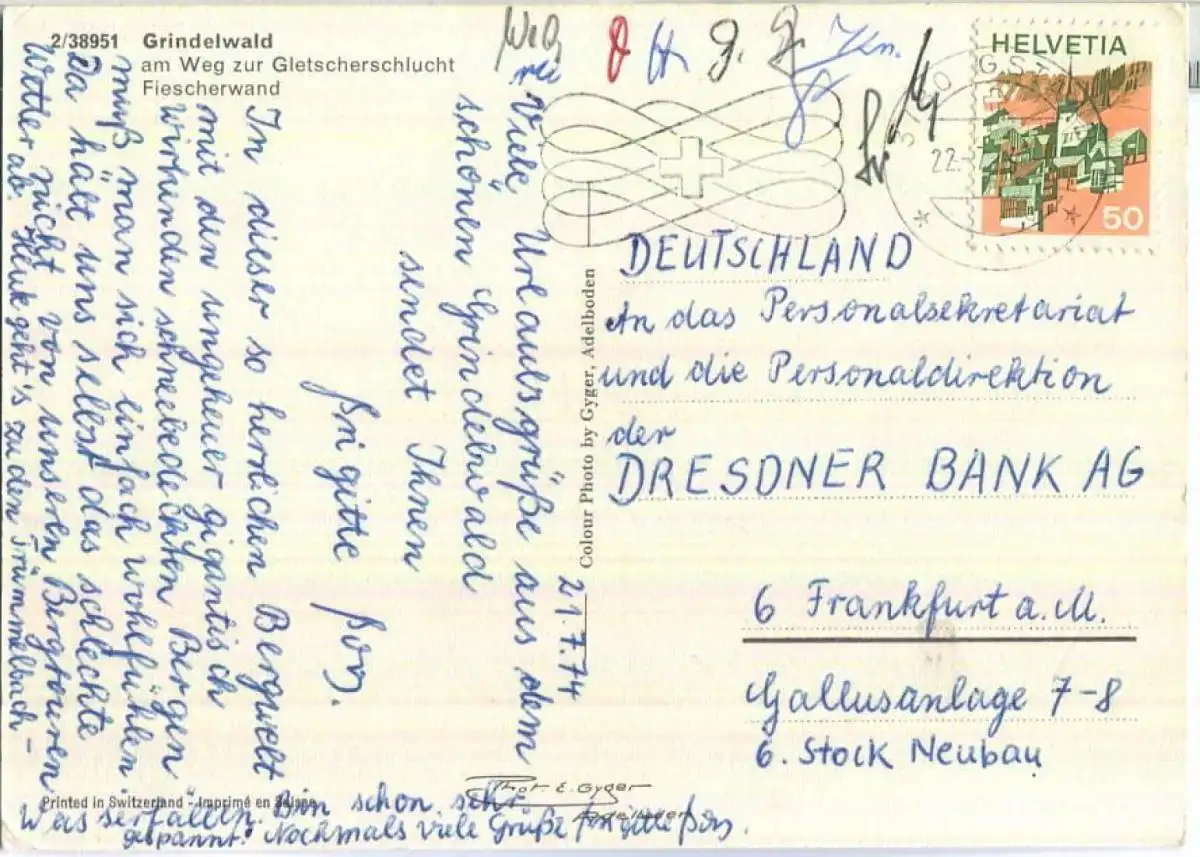 2/38951 Grindelwald
am Weg zur Gletscherschlucht
Fiescherwand
21.7.74
Viele Urlaubsgrüße aus dem
schönen Grindelwald
sendet Ihnen
Brigitte
In dieser so herrlichen Bergwelt
mit den ungeheuer gigantisch
wirkenden schneebedeckten Bergen
muß man sich einfach wohlfühlen
Da hält uns selbst das schlechte
Wetter nicht von unseren Bergtouren
ab. Heute geht's zu den Trümmelbach-
Wasserfällen. Bin schon sehr
gespannt! Nochmals viele Grüße Brigitte
Printed in Switzerland - Imprimé en Suisse
Colour Photo by Gyger, Adelboden
Phot E. Gyger
Adelboden
HELVETIA
50
22.
DEUTSCHLAND
An das Personalsekretariat
und die Personaldirektion
der
DRESDNER BANK AG
6 Frankfurt a.M.
Gallusanlage 7-8
6. Stock Neubau